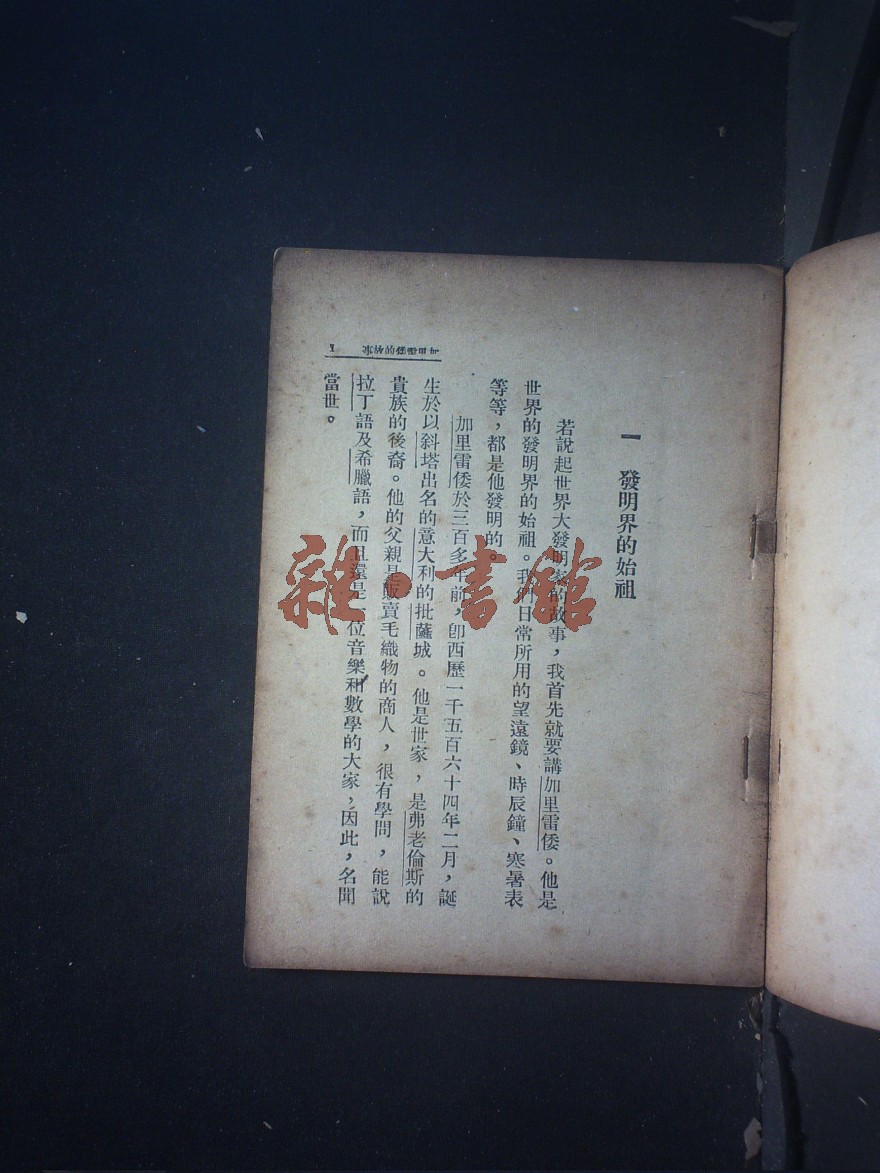 一 發明界的始祖
若說起世界大發明家的故事，我首先就要講加里雷倭。他是
世界的發明界的始祖。我們日常所用的望遠鏡、時辰鐘、寒暑表
等等，都是他發明的。
加里雷倭於三百多年前，卽西歷一千五百六十四年二月，誕
生於以斜塔出名的意大利的批薩城。他是世家，是弗老倫斯的
貴族的後裔。他的父親是販賣毛織物的商人，很有學問，能說
拉丁語及希臘語，而且還是一位音樂和數學的大家，因此，名聞
當世。
加里雷倭的故事 1
雜·書館